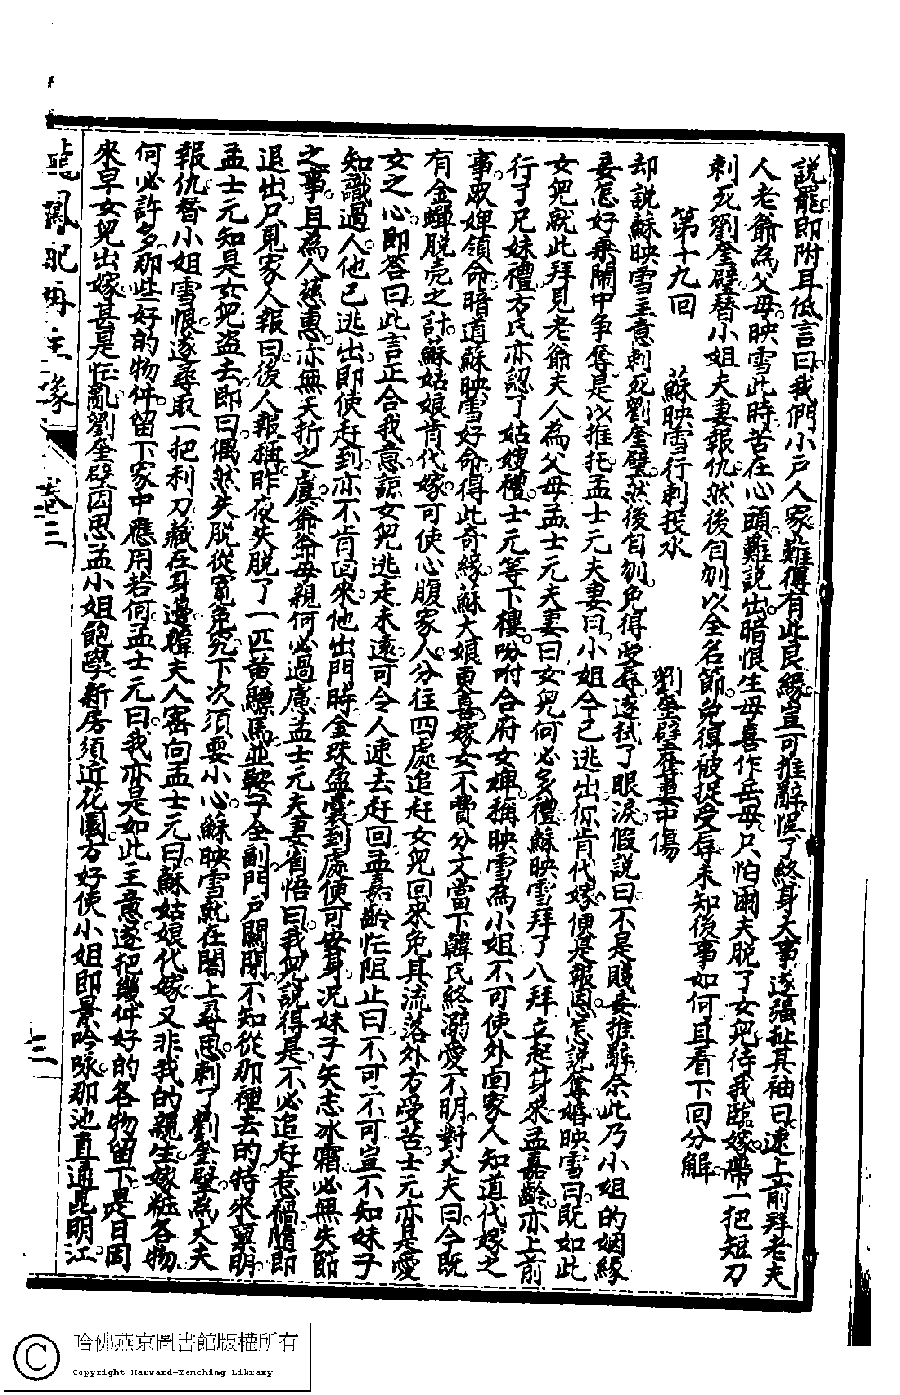 說罷即附耳低言曰我們小戶人家難得有此良緣豈可推辭悞了終身大事遂強扯其袖曰速上前拜老夫
人老爺為父母映雪此時苦在心頭難說出暗恨生母喜作岳母只怕爾夫脫了女兒待我臨嫁帶一把短刀
刺死劉奎璧替小姐夫妻報仇然後自刎以全名節免得被捉受辱未知後事如何且看下回分解
第十九回 蘇映雪行刺投水 劉奎璧奪妻中傷
却說蘇映雪主意刺死劉奎璧然後自刎免得受辱遂拭了眼淚假說曰不是賤妾推辭奈此乃小姐的姻緣
妾怎好乘鬧中爭奪是以推托孟士元夫妻曰小姐今已逃出你肯代嫁便是報恩怎說奪婚映雪曰既如此
女兒就此拜見老爺夫人為父母孟士元夫妻曰女兒何必多禮蘇映雪拜了八拜立起身來孟嘉齡亦上前
行了兄妹禮方氏亦認了姑嫂禮士元等下樓吩咐合府女婢稱映雪為小姐不可使外面家人知道代嫁之
事眾婢領命暗道蘇映雪好命得此奇緣蘇大娘更喜嫁女不費分文當下韓氏終溺愛不明對丈夫曰今既
有金蟬脫壳之計蘇姑娘肯代嫁可使心腹家人分往四處追赶女兒回來免其流落外方受苦士元亦是愛
女之心即答曰此言正合我意諒女兒逃走未遠可令人速去赶回孟嘉齡忙阻止曰不可不可豈不知妹子
知識過人他已逃出即使赶到亦不肯回來他出門時金珠盈囊到處便可安身况妹子矢志冰霜必無失節
之事且為人慈惠亦無夭折之虞爺爺母親何必過慮孟士元夫妻省悟曰我兒說得是不必追赶惹禍隨即
退出戶見家人報曰後人報稱昨夜失脫了一匹黃驃馬並鞍子全副門戶關閉不知從那裡去的特來稟明
孟士元知是女兒盜去即曰偶然失脫從寬免究下次須要小心蘇映雪就在閣上尋思刺了劉奎璧為丈夫
報仇替小姐雪恨遂尋取一把利刀藏在身邊韓夫人密向孟士元曰蘇姑娘代嫁又非我的親生嫁粧各物
何必許多那些好的物件留下家中應用若何孟士元曰我亦是如此主意遂把幾件好的各物留下是日因
來早女兒出嫁甚是忙亂劉奎璧因思孟小姐飽學新房須近花園方好使小姐即景吟咏那池直通昆明江
龍鳳配再生緣 卷三 三
哈佛燕京圖書館版權所有
Copyright Harvard-Yenching Library